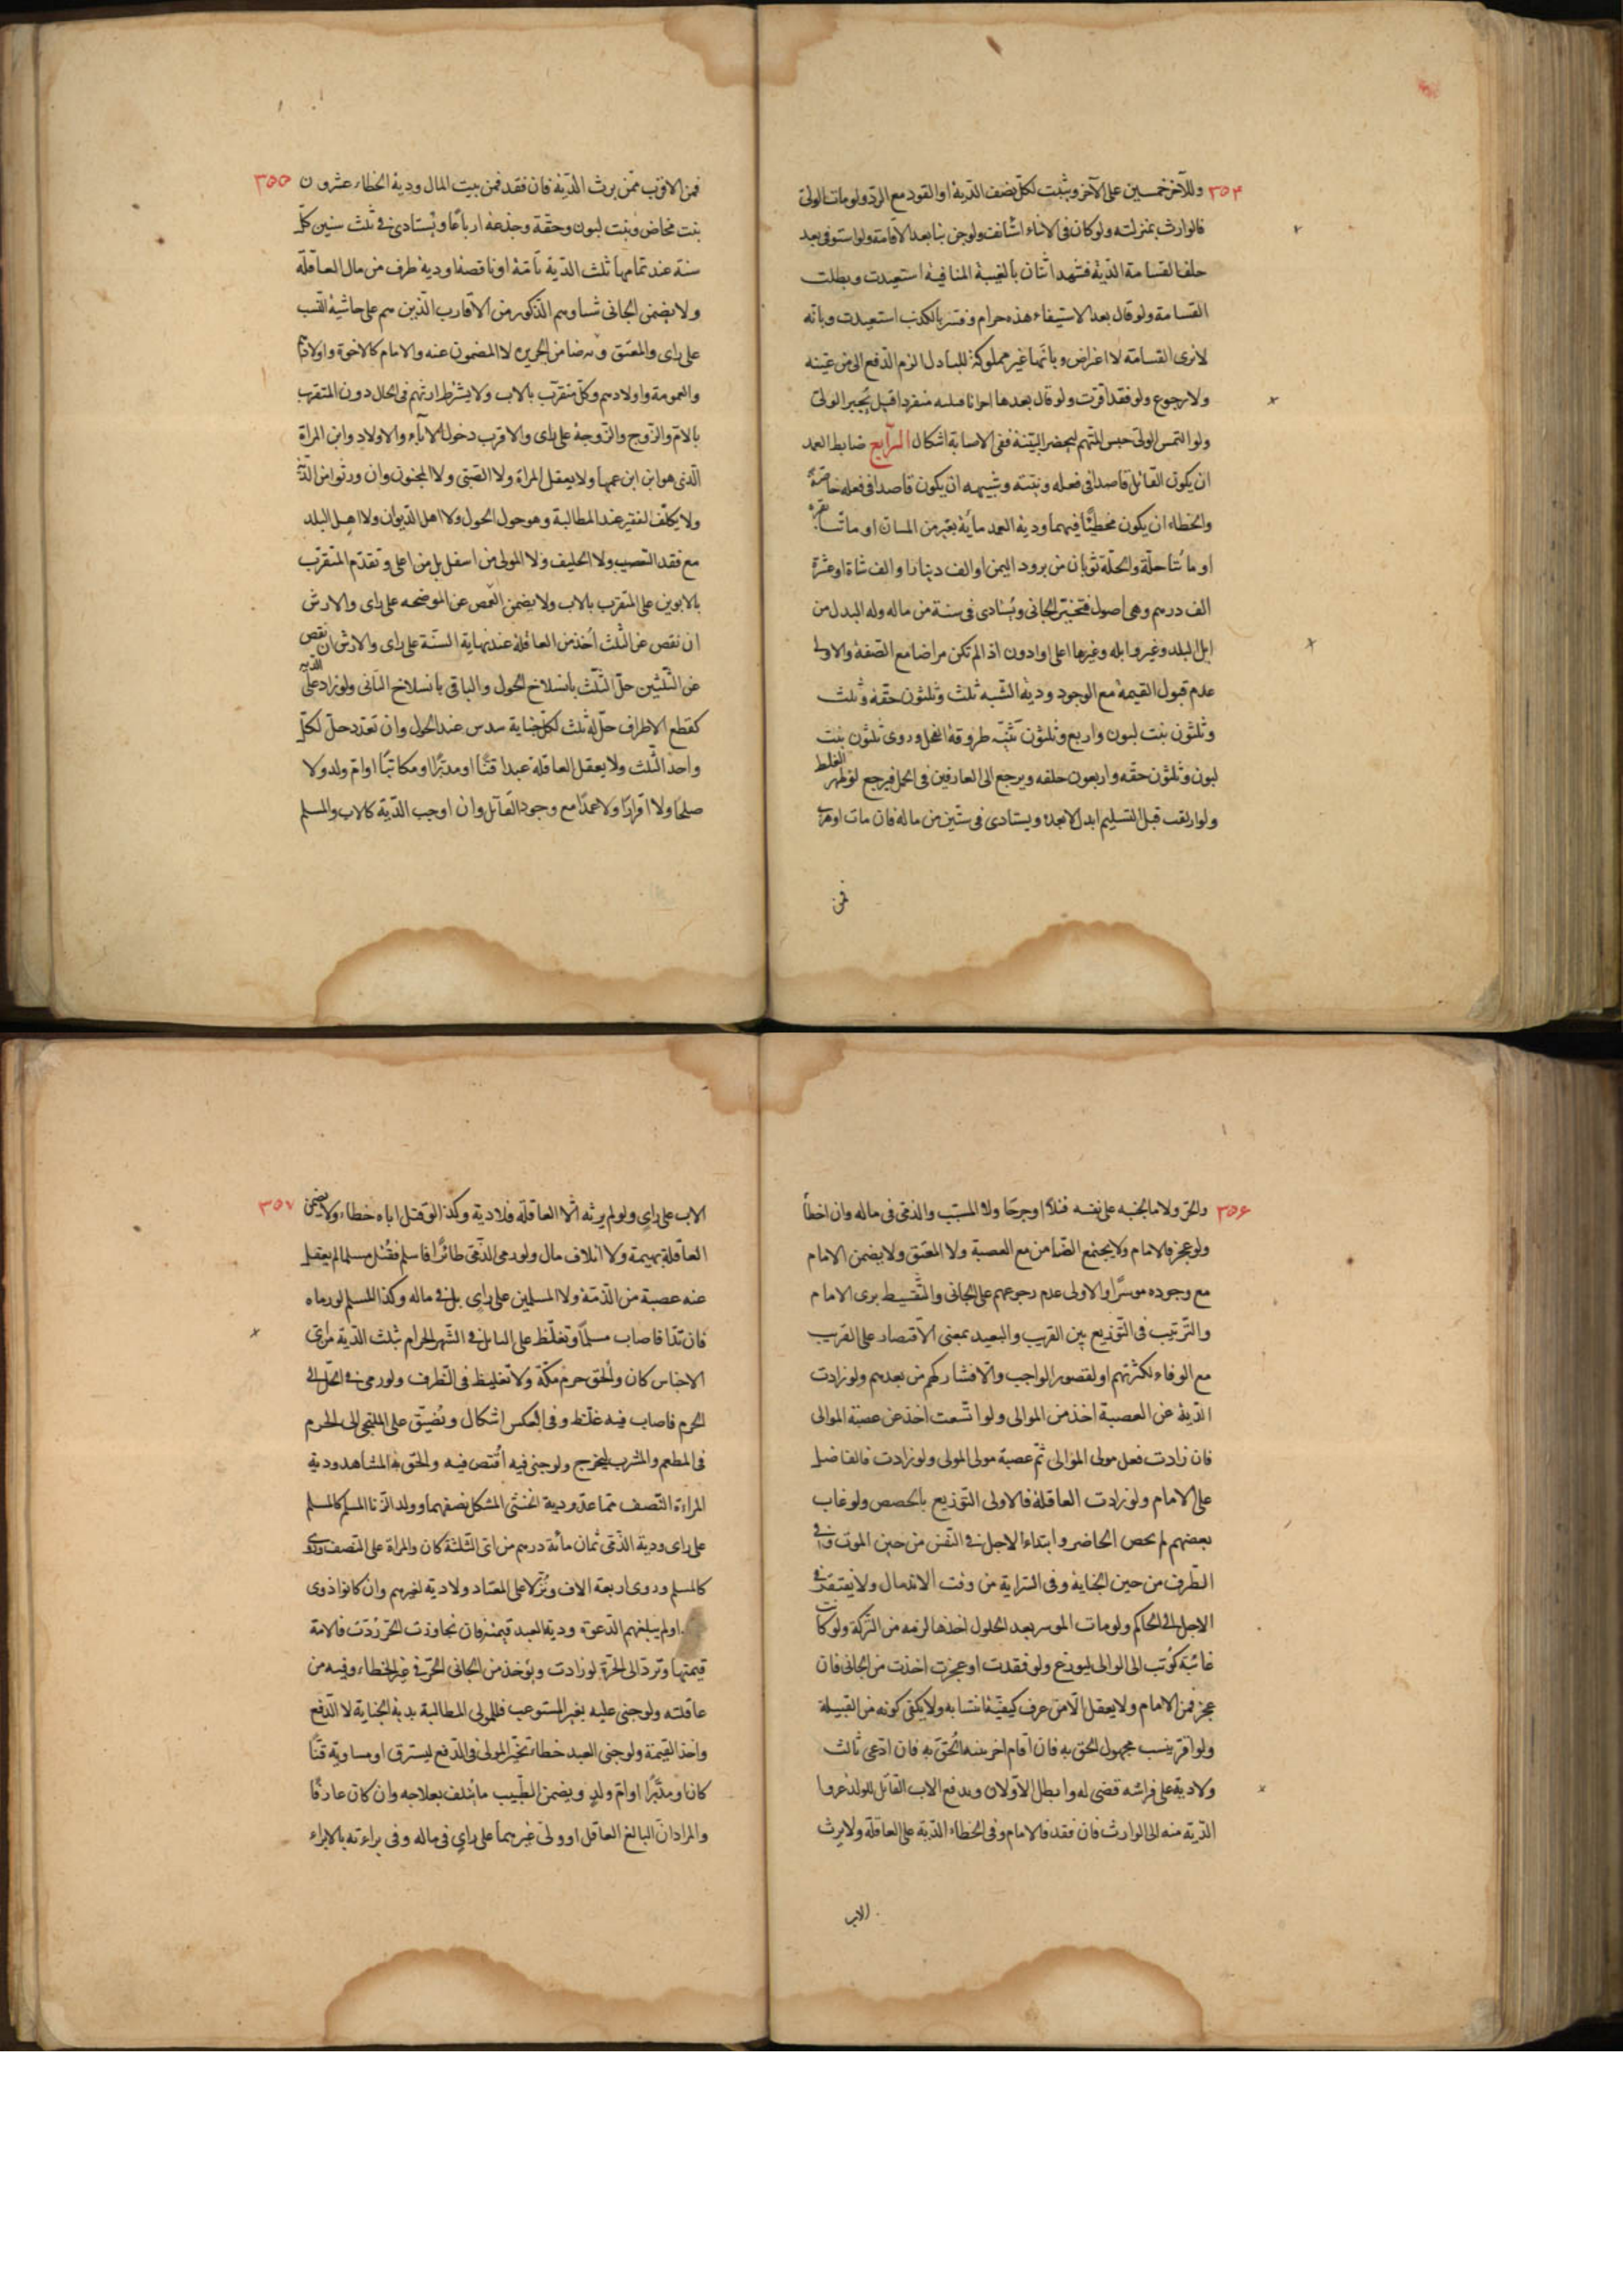 ٣٥٤ وللآخر خمسين على الآخر ويثبت لكل نصف الدية او القود مع الرد ولو مات الولى
فالوارث بمنزلته ولو كان فى الاثناء استأنف ولو جن بنا بعد الاقامة ولو استوفى بعد
حلف القسامة الدية فشهد اثنان بالغيبة المنافية استعيدت وبطلت
القسامة ولو قال بعد الاستيفاء هذه حرام وفسر بالكذب استعيدت وبانه
لا يرى القسامة لا اعتراض وبانها غير مملوكة للباذل الزم الدفع الى من عينه
ولا رجوع ولو فقد اقرت ولو قال بعدها انا قتلته منفردا قيل يخير الولى
ولو التمس الولى حبس المتهم ليحضر البينة ففى الاصابة اشكال الرابع ضابط العمد
ان يكون القاتل قاصدا فى فعله ونيته وشبيهه ان يكون قاصدا فى فعله خاصة
والخطاء ان يكون مخطئا فيهما ودية العمد مائة بعير من المسان او مائتا بقرة
او مائتا حلة والحلة ثوبان من برود اليمن او الف دينار او الف شاة او عشرة
الف درهم وهى اصول فتخير الجانى ويستادى فى سنة من ماله وله البدل من
ابل البلد وغيره وابله وغيرها اعلى او ادون اذا لم تكن مراضا مع الصفة والاولى
عدم قبول القيمة مع الوجود ودية الشبه ثلث وثلثون حقة وثلث
وثلثون بنت لبون واربع وثلثون ثنية طروقة الفحل وروى ثلثون بنت
لبون وثلثون حقه واربعون خلفه ويرجع الى العارفين فى الحمل فيرجع لو ظهر الغلط
ولو ازلقت قبل التسليم ابدل لا بعده ويستادى فى سنتين من ماله فان مات او هرب
فمن
٣٥٥ فمن الاقرب ممن يرث الدية فان فقد فمن بيت المال ودية الخطاء عشرون
بنت مخاض وبنت لبون وحقة وجذعة ارباعا ويستادى فى ثلث سنين كل
سنة عند تمامها ثلث الدية تامة او ناقصة او دية طرف من مال العاقلة
ولا يضمن الجانى شيئا وهم الذكور من الاقارب الذين هم على حاشية النسب
على راى والمعتق وضامن الجريرة لا المضمون عنه والامام كالاخوة واولادهم
والعمومة واولادهم وكل متقرب بالاب ولا يشترط ارثهم فى الحال دون المتقرب
بالام والزوج والزوجة على راى والاقرب دخول الاباء والاولاد وابن المراة
الذى هو ابن ابن عمها ولا يعقل المراة ولا الصبى ولا المجنون وان ورثوا من الدية
ولا يكلف الفقير عند المطالبة وهو حول الحول ولا اهل الديوان ولا اهل البلد
مع فقد التعصيب ولا الحليف ولا المولى من اسفل بل من اعلى وتقدم المتقرب
بالابوين على المتقرب بالاب ولا يضمن النقص عن الموضحه على راى والارش
ان نقص عن الثلث اخذ من العاقلة عند نهاية السنة على راى والارش ان نقص
عن الثلثين حل الثلث بانسلاخ الحول والباقى بانسلاخ الثانى ولو زاد على الدية
كقطع الاطراف حل له ثلث لكل جناية سدس عند الحول وان تعدد حل لكل
واحد الثلث ولا يعقل العاقلة عبدا قنا او مدبرا او مكاتبا او ام ولد ولا
صلحا ولا اقرارا ولا عمدا مع وجود القاتل وان اوجب الدية كالاب والمسلم
٣٥٦ والحر ولا ما يجنيه على نفسه قتلا او جرحا ولا المسبب والذمى فى ماله وان اخطأ
ولو عجز فالامام ولا يجتمع الضامن مع العصبة ولا المعتق ولا يضمن الامام
مع وجوده موسرا والاولى عدم رجوعهم على الجانى والتقسيط برى الامام
والترتيب فى التوزيع بين القريب والبعيد بمعنى الاقتصار على القريب
مع الوفاء لكثرتهم او لقصور الواجب والا فشاركهم من بعدهم ولو زادت
الدية عن العصبة اخذ من الموالى ولو اتسعت اخذ عن عصبة الموالى
فان زادت فعلى مولى الموالى ثم عصبة مولى المولى ولو زادت فالفاضل
على الامام ولو زادت العاقلة فالاولى التوزيع بالحصص ولو غاب
بعضهم لم يخص الحاضر وابتداء الاجل فى النفس من حين الموت وفى
الطرف من حين الجناية وفى السراية من وقت الاندمال ولا يفتقر فى
الاجل الى الحاكم ولو مات الموسر بعد الحلول اخذ ما لزمه من التركة ولو كانت
غائبة كوتب الى الوالى ليوزع ولو فقدت او عجزت اخذت من الجانى فان
عجز فمن الامام ولا يعقل الا من عرف كيفية انتسابه ولا يكفى كونه من القبيلة
ولو اقر بنسب مجهول الحق به فان اقام اخر بينة الحق به فان ادعى ثالث
ولادته على فراشه قضى له وابطل الاولان ويدفع الاب القاتل للولد عمدا
الدية منه الى الوارث فان فقد فالامام وفى الخطاء الدية على العاقلة ولا يرث
الاب
٣٥٧ الاب على راى ولو لم يرثه الا العاقلة فلا دية وكذا لو قتل اباه خطاء ولا يضمن
العاقلة بهيمة ولا اتلاف مال ولو رمى الذمى طائرا فاسلم فقتل مسلما لم يعقل
عنه عصبة من الذمة ولا المسلمين على راى بل فى ماله وكذا المسلم لو رماه
فارتد فاصاب مسلما وتغلظ على القاتل فى الشهر الحرام ثلث الدية من اى
الاجناس كان والحق حرم مكة ولا تغليظ فى الطرف ولو رمى فى الحل الى
الحرم فاصاب فيه غلظ وفى العكس اشكال ويضيق على الملتجى الى الحرم
فى المطعم والمشرب ليخرج ولو جنى فيه اقتص فيه والحق به المشاهد ودية
المراة النصف مما عد ودية الخنثى المشكل نصفهما وولد الزنا المسلم كالمسلم
على راى ودية الذمى ثمان مائة درهم من اى الثلثة كان والمراة على النصف وروى
كالمسلم وروى اربعة الاف ونزلا على المعتاد ولا دية لغيرهم وان كانوا ذوى
او لم يبلغهم الدعوة ودية العبد قيمته فان تجاوزت الحر ردت فالامة
قيمتها وترد الى الحرة لو زادت ويؤخذ من الجانى الحر فى غير الخطاء وفيه من
عاقلته ولو جنى عليه بغير المستوعب فللمولى المطالبة بدية الجناية لا الدفع
واخذ القيمة ولو جنى العبد خطاء تخير المولى فى الدفع ليسترق او مساويه قنا
كان او مدبرا او ام ولد ويضمن الطبيب ما يتلف بعلاجه وان كان عارفا
والمراد ان البالغ العاقل او ولى غيرهما على راى فى ماله وفى براءته بالابراء